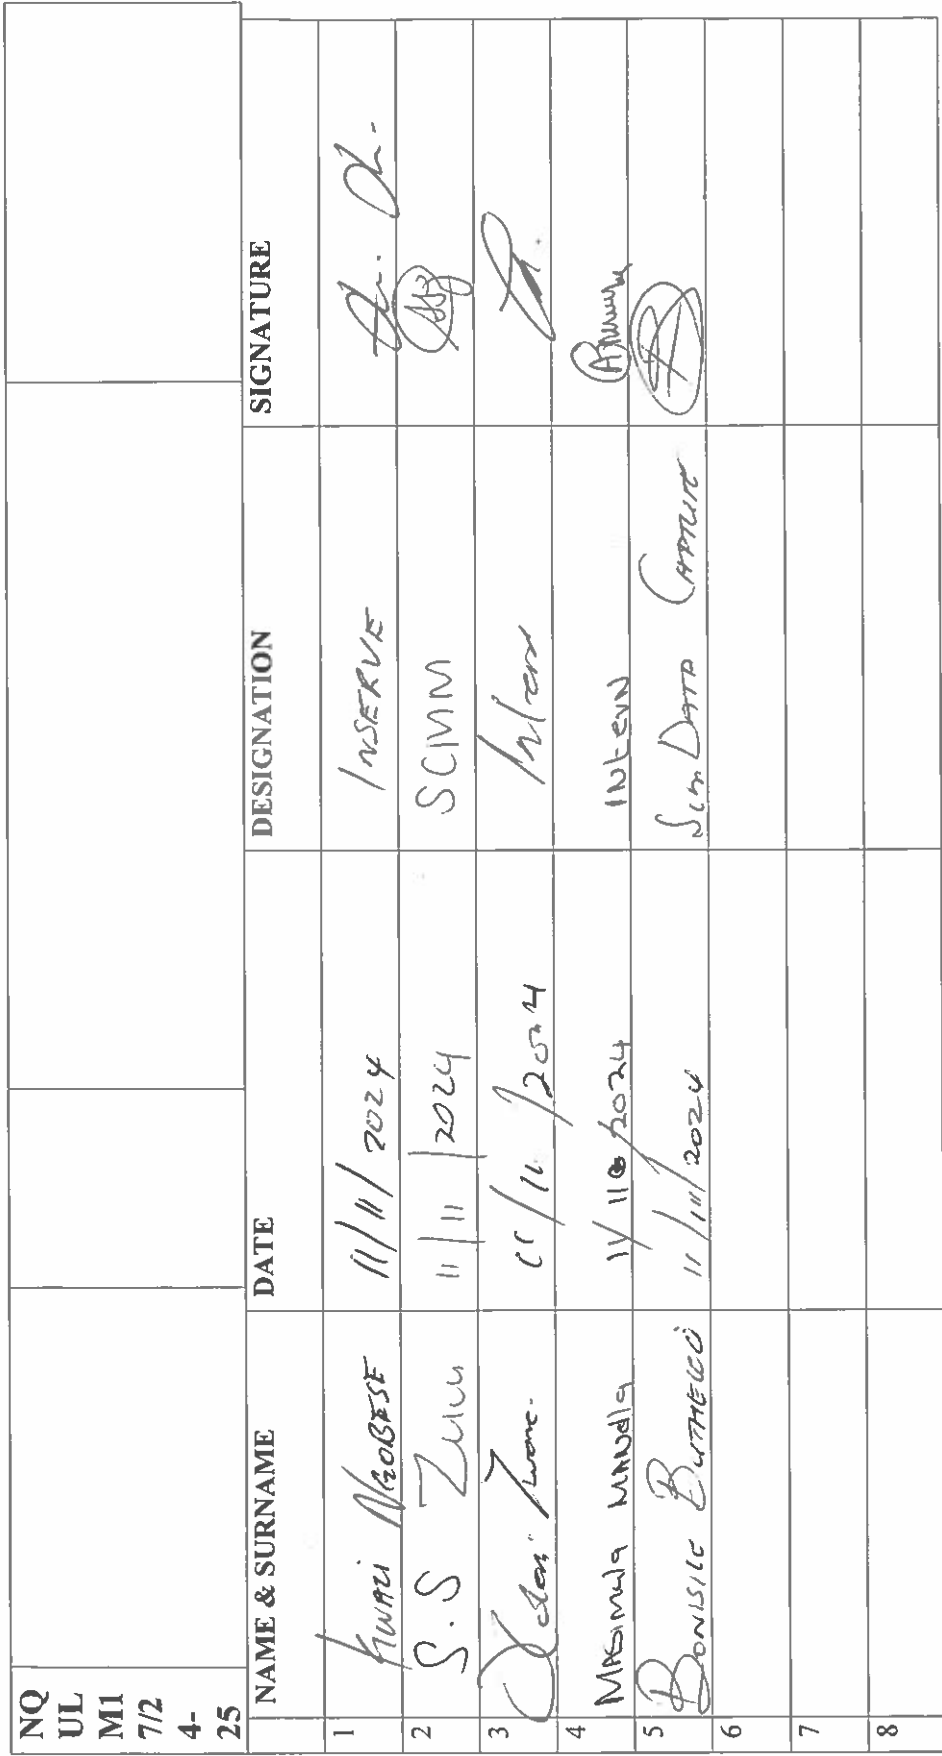 NQ
UL
M1
7/2
4-
25
NAME & SURNAME DATE DESIGNATION SIGNATURE
1 Kwazi Ngobese 11/11/2024 INSERVE
2 S.S Zulu 11/11/2024 SCMM
3 Zwane 11/11/2024 Intern
4 Masimula Mandla 2024 INtern
5 Bonisile Buthelezi 11/11/2024 Scm Data Capture
6
7
8